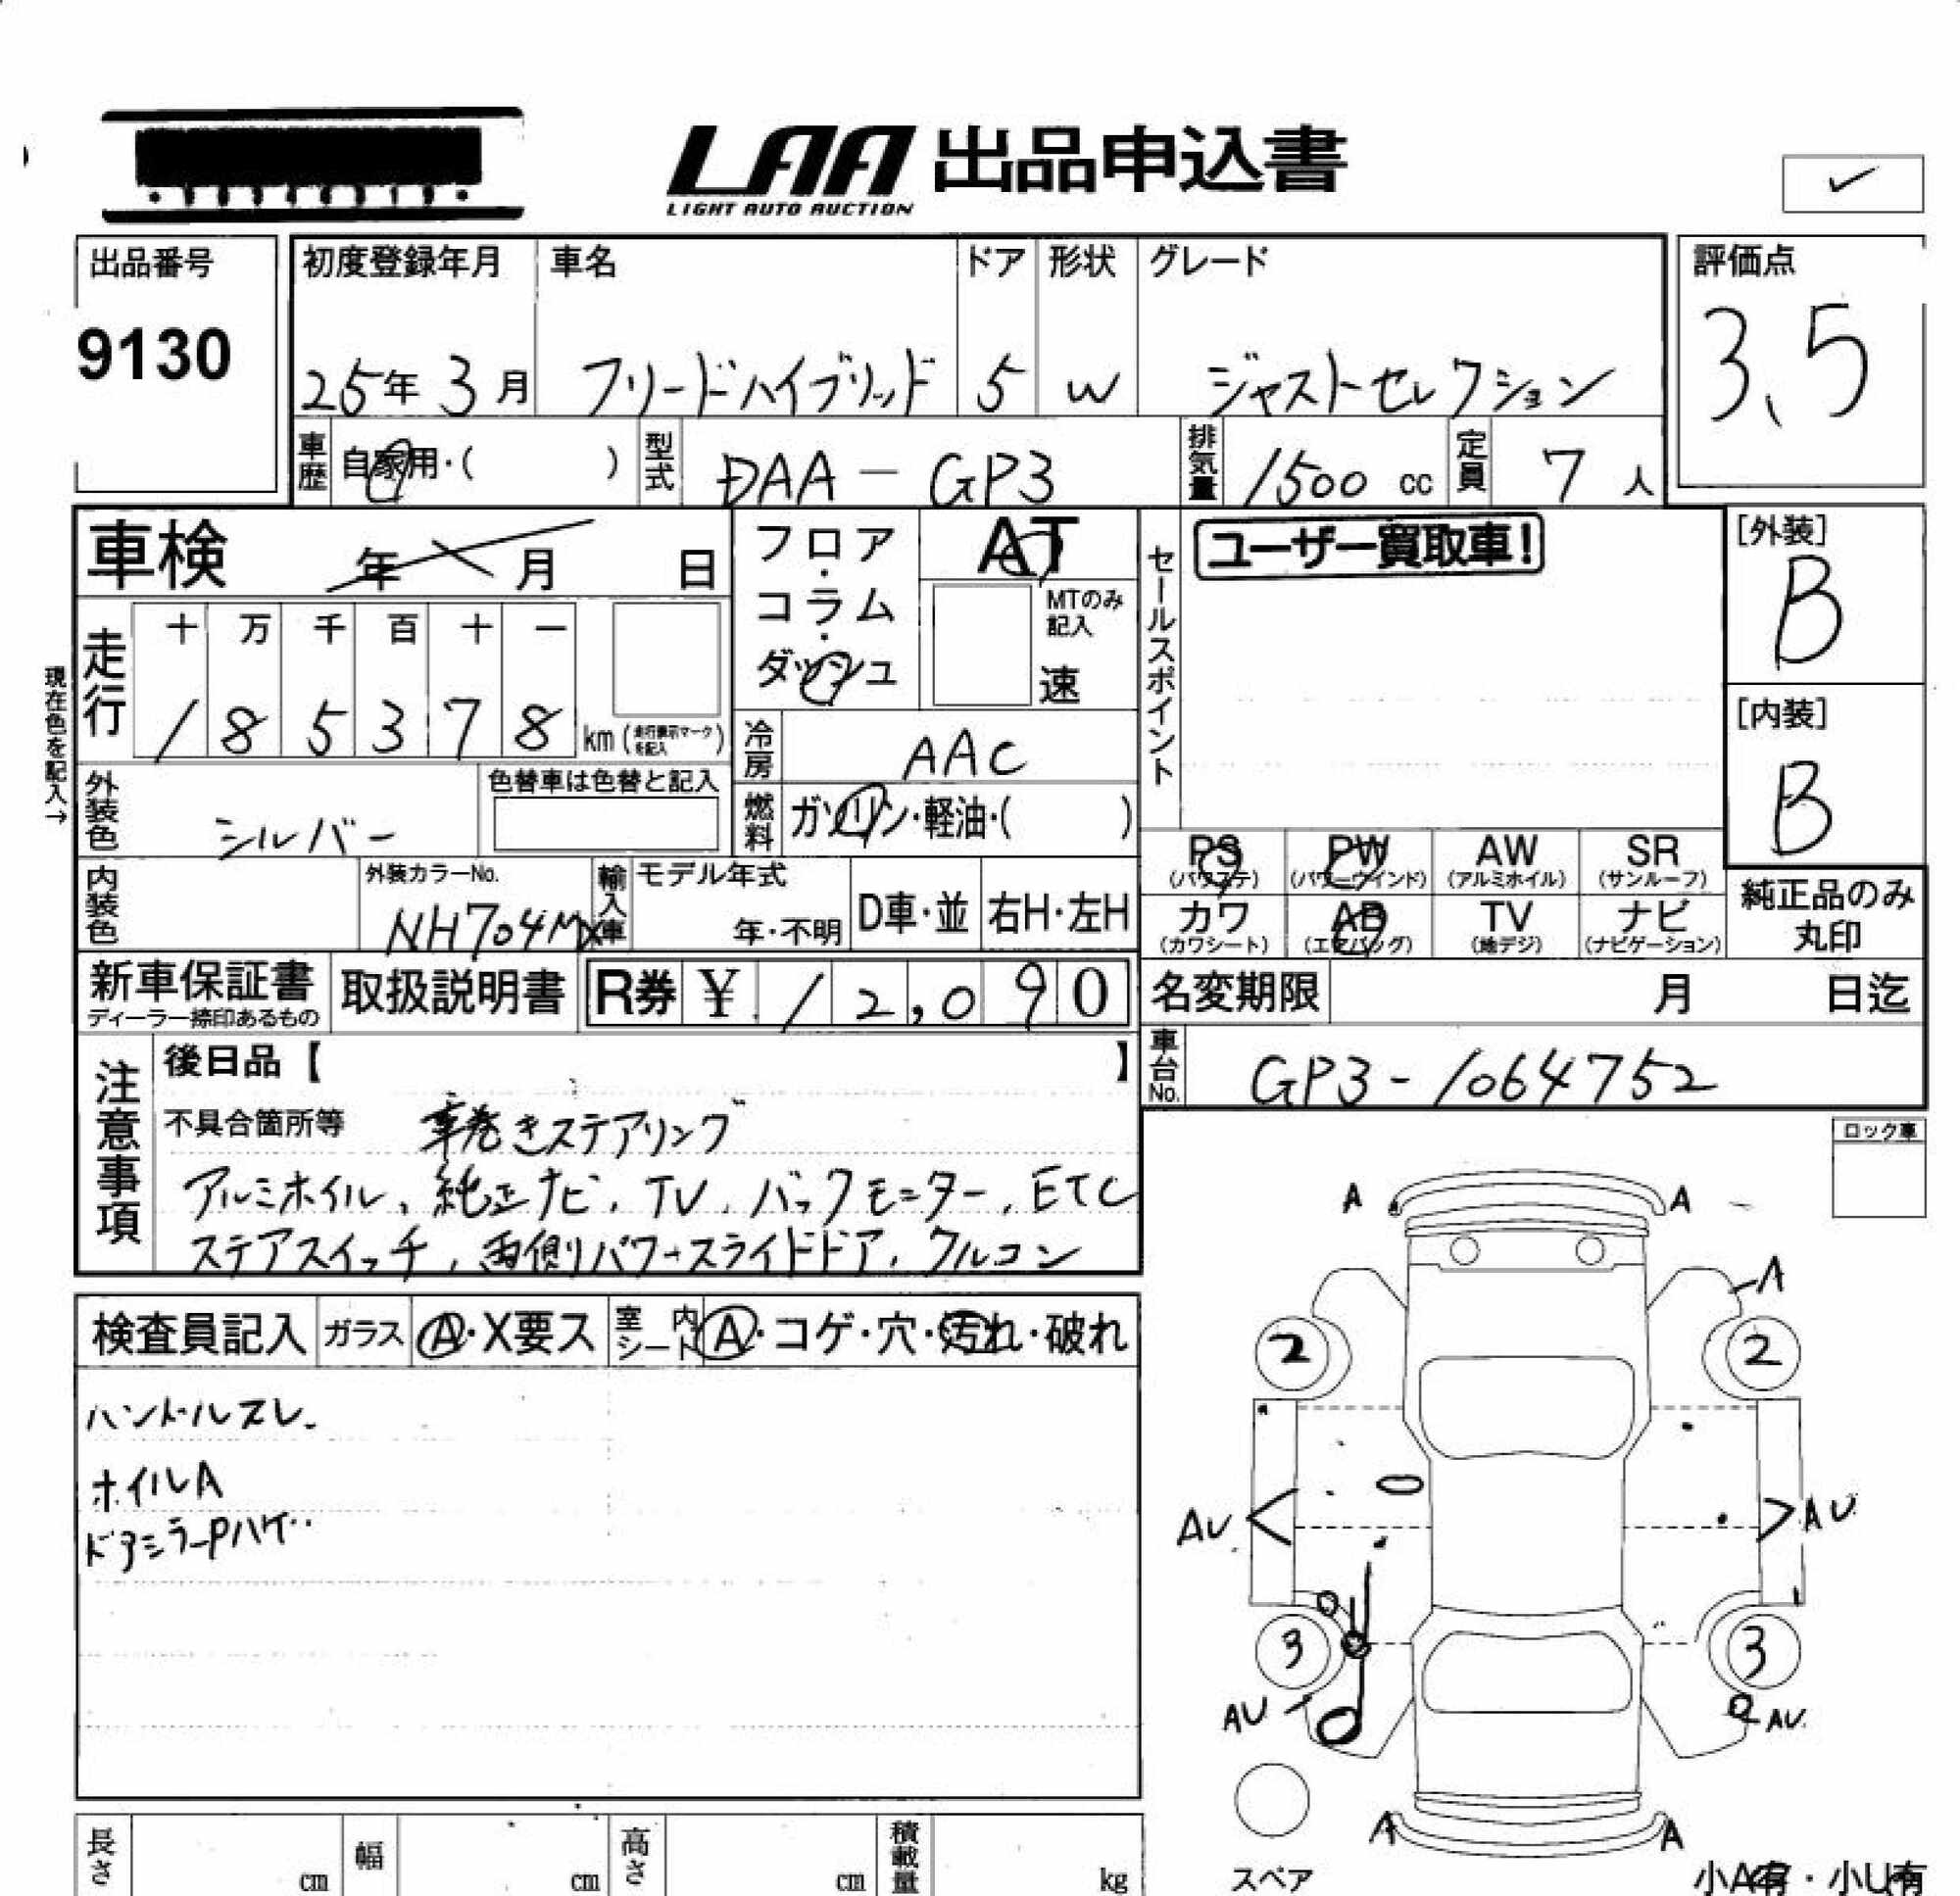 LAA 出品申込書
LIGHT AUTO AUCTION
出品番号
9130
初度登録年月 車名 ドア 形状 グレード
25年 3月 フリードハイブリッド 5 W ジャストセレクション
評価点
3.5
車歴 自家用・( ) 型式 DAA-GP3 排気量 1500 cc 定員 7 人
車検 年 月 日
フロア・コラム・ダッシュ
AT
MTのみ記入
速
セールスポイント
ユーザー買取車!
[外装]
B
[内装]
B
現在色を記入→
走行 十 万 千 百 十 一
1 8 5 3 7 8 km (走行表示マークを記入)
冷房 AAC
外装色 シルバー
色替車は色替と記入
燃料 ガソリン・軽油・( )
PS (パワステ) PW (パワーウインド) AW (アルミホイル) SR (サンルーフ)
カワ (カワシート) AB (エアバッグ) TV (地デジ) ナビ (ナビゲーション)
純正品のみ丸印
内装色
外装カラーNo.
NH704M
輸入車 モデル年式
年・不明 D車・並 右H・左H
新車保証書
ディーラー捺印あるもの
取扱説明書
R券 ¥ 12,090
名変期限 月 日迄
車台No. GP3-1064752
注意事項
後日品【 】
不具合箇所等 革巻きステアリング
アルミホイル、純正ナビ、TV、バックモニター、ETC
ステアスイッチ、両側パワースライドドア、クルコン
ロック車
検査員記入 ガラス A・X要ス 室内シート A・コゲ・穴・汚れ・破れ
ハンドルスレ
ホイルA
ドアミラーPハゲ
A A
A
2 2
AU AU
3 3
AU AU
A A
スペア
小A有・小U有
長さ cm 幅 cm 高さ cm 積載量 kg